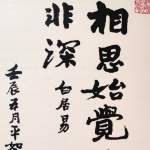 相思始覺
非深
白居易
壬辰五月平如